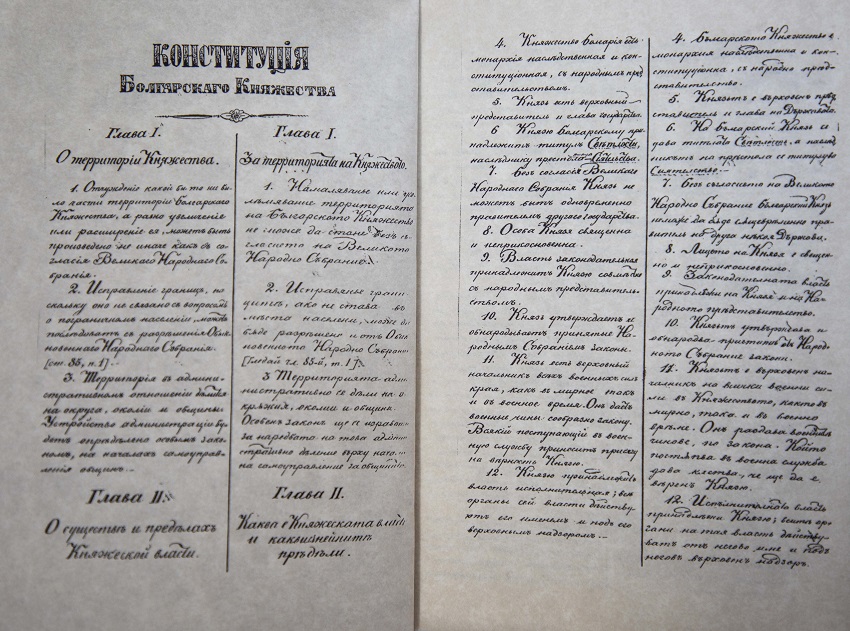 КОНСТИТУЦІЯ
БОЛГАРСКАГО КНЯЖЕСТВА
Глава I.
О территоріи Княжества.
1. Отчужденіе какой бы то ни бы-
ло части территоріи Болгарскаго
Княжества, а равно увеличеніе
или расширеніе ея, можетъ быть
произведено не иначе какъ съ со-
гласія Великаго Народнаго Со-
бранія.
2. Исправленіе границъ, по-
скольку оно не связано съ вопросомъ
о пограничномъ населеніи, можетъ
послѣдовать съ разрѣшенія Обык-
новеннаго Народнаго Собранія.
[ст. 85, п. 1]
3. Территорія въ админи-
стративномъ отношеніи дѣлится
на округа, околіи и общины.
Устройство администраціи бу-
детъ опредѣлено особымъ зако-
номъ, на началахъ самоуправ-
ленія общинъ.
Глава II.
О существѣ и предѣлахъ
Княжеской власти.
Глава I.
За территорията на Княжеството.
1. Намаляванье или
уголѣмяванье территорията
на Българското Княжество
не може да стане безъ съ-
гласието на Великото
Народно Събрание.
2. Исправянье грани-
цитѣ, ако не става въ
мѣста населени, може да
бѫде разрѣшено и отъ Обик-
новенното Народно Събрание
[гледай гл. 85-й, п. 1]
3 Территорията адми-
нистративно се дѣли на о-
крѫжия, околии и общини.
Особенъ законъ ще се изработи
за наредбата на това админи-
стративно дѣление върху начала
на самоуправление за общинитѣ.
Глава II.
Каква е Княжеската власть
и какви сѫ нейнитѣ
прѣдѣли.
4. Княжество Болгарія есть
монархія наслѣдственная и кон-
ституціонная, съ народнымъ пред-
ставительствомъ.
5. Князь есть верховный
представитель и глава государства.
6 Князю Болгарскому при-
надлежитъ титулъ Свѣтлости,
наслѣднику престола Сіятельства.
7. безъ согласія Великаго
Народнаго Собранія Князь не
можетъ быть одновременно
правителемъ другого государства.
8. Особа Князя священна
и неприкосновенна.
9. Власть законодательная
принадлежитъ Князю совмѣстно
съ народнымъ представитель-
ствомъ.
10. Князь утверждаетъ и
обнародываетъ принятые На-
роднымъ Собраніемъ законы.
11. Князь есть верховный
начальникъ всѣхъ военныхъ силъ
края, какъ въ мирное такъ
и въ военное время. Онъ даетъ
военные чины сообразно закону.
Всякій поступающій въ воен-
ную службу приноситъ присягу
на вѣрность Князю.
12. Князю принадлежитъ
власть исполнительная; всѣ
органы сей власти дѣйству-
ютъ его именемъ и подъ его
верховнымъ надзоромъ.
4. Българското Княжество е
монархия наслѣдственна и кон-
ституционна, съ народно прѣд-
ставителство.
5. Князътъ е върховенъ прѣд-
ставитель и глава на Държавата.
6. На Българский Князь се
дава титла Свѣтлость, а наслѣд-
никътъ на пристола се титулува
Сиятелство.
7. безъ съгласието на Великото
Народно Събрание Българский Князь
неможе да бѫде сѫщевременно пра-
витель на друга нѣкоя Държава.
8. Лицето на Князя е свещен-
но и неприкосновенно.
9. Законодателната власть
принадлежи на Князя и на На-
родното прѣдставителство.
10. Князътъ утвърдява и
обнародва приетитѣ отъ Народ-
ното Събрание закони.
11. Князътъ е върховенъ на-
чалникъ на всички военни си-
ли въ Княжеството, както въ
мирно, така и въ военно
врѣме. Онъ раздава военнитѣ
чинове, по закона. Който
постѫпва въ военна служба
дава клетва, че ще да е
вѣренъ Князю.
12. Исполнителната власть
принадлѣжи Князю; сичкитѣ ор-
гани на тая власть дѣйству-
ватъ отъ негово име и подъ
неговъ върховенъ надзоръ.